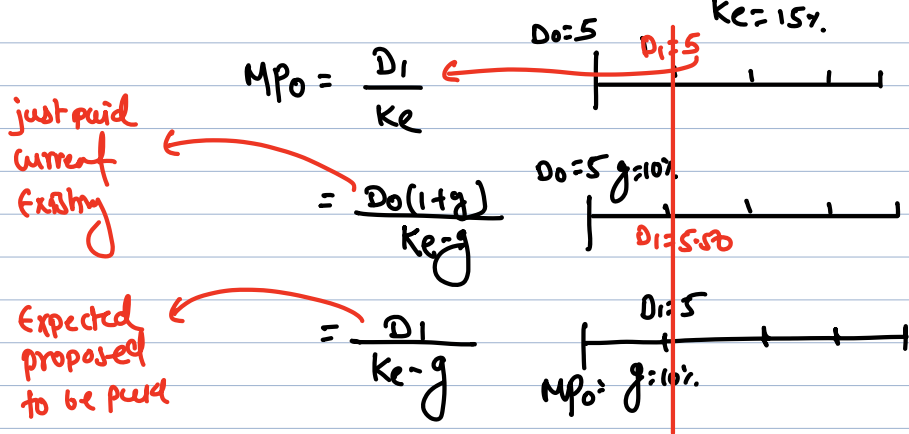 Ke = 15%.
D0 = 5
D1 = 5
MP0 = D1 / Ke
just paid
current
Existing
= D0(1+g) / Ke-g
D0 = 5 g=10%.
D1 = 5.50
Expected
proposed
to be paid
= D1 / Ke-g
D1 = 5
MP0 = g=10%.